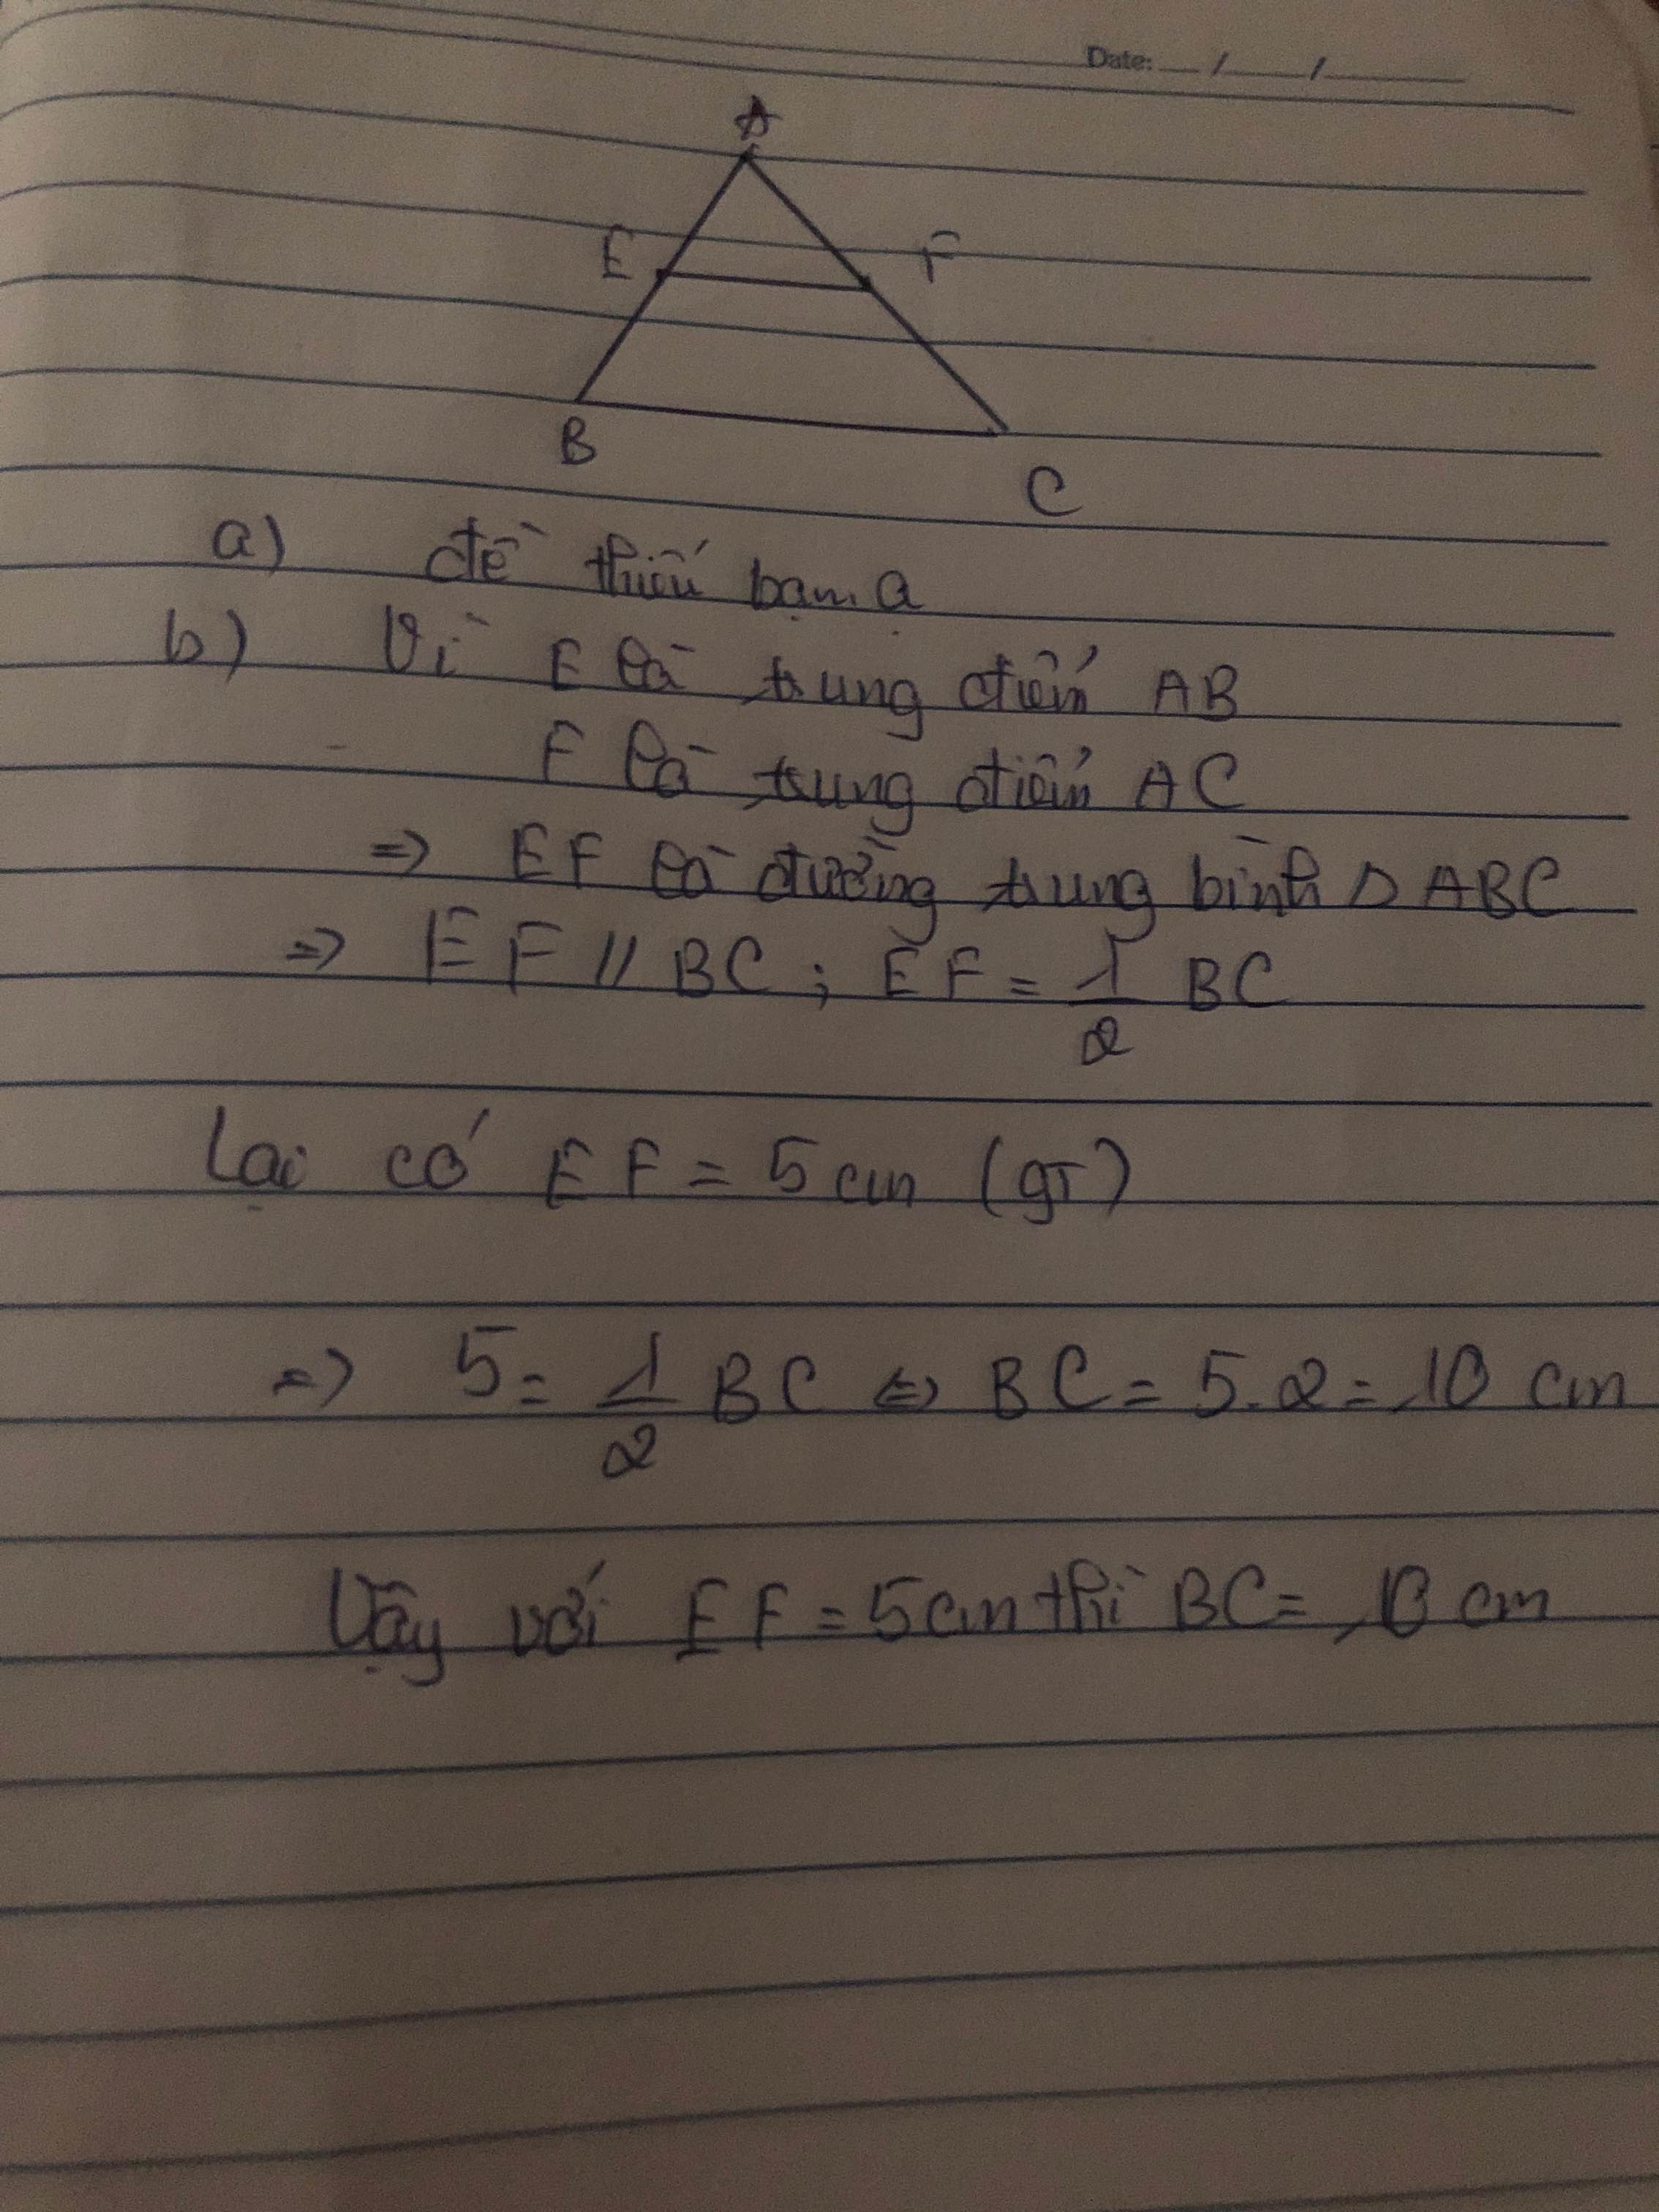 Date: __/__/__
A
E F
B
C
a) đề thiếu bạn ạ
b) Vì E là trung điểm AB
F là trung điểm AC
=> EF là đường trung bình Δ ABC
=> EF // BC ; EF = 1/2 BC
Lại có EF = 5 cm (gt)
=> 5 = 1/2 BC <=> BC = 5.2 = 10 cm
Vậy với EF = 5cm thì BC = 10 cm